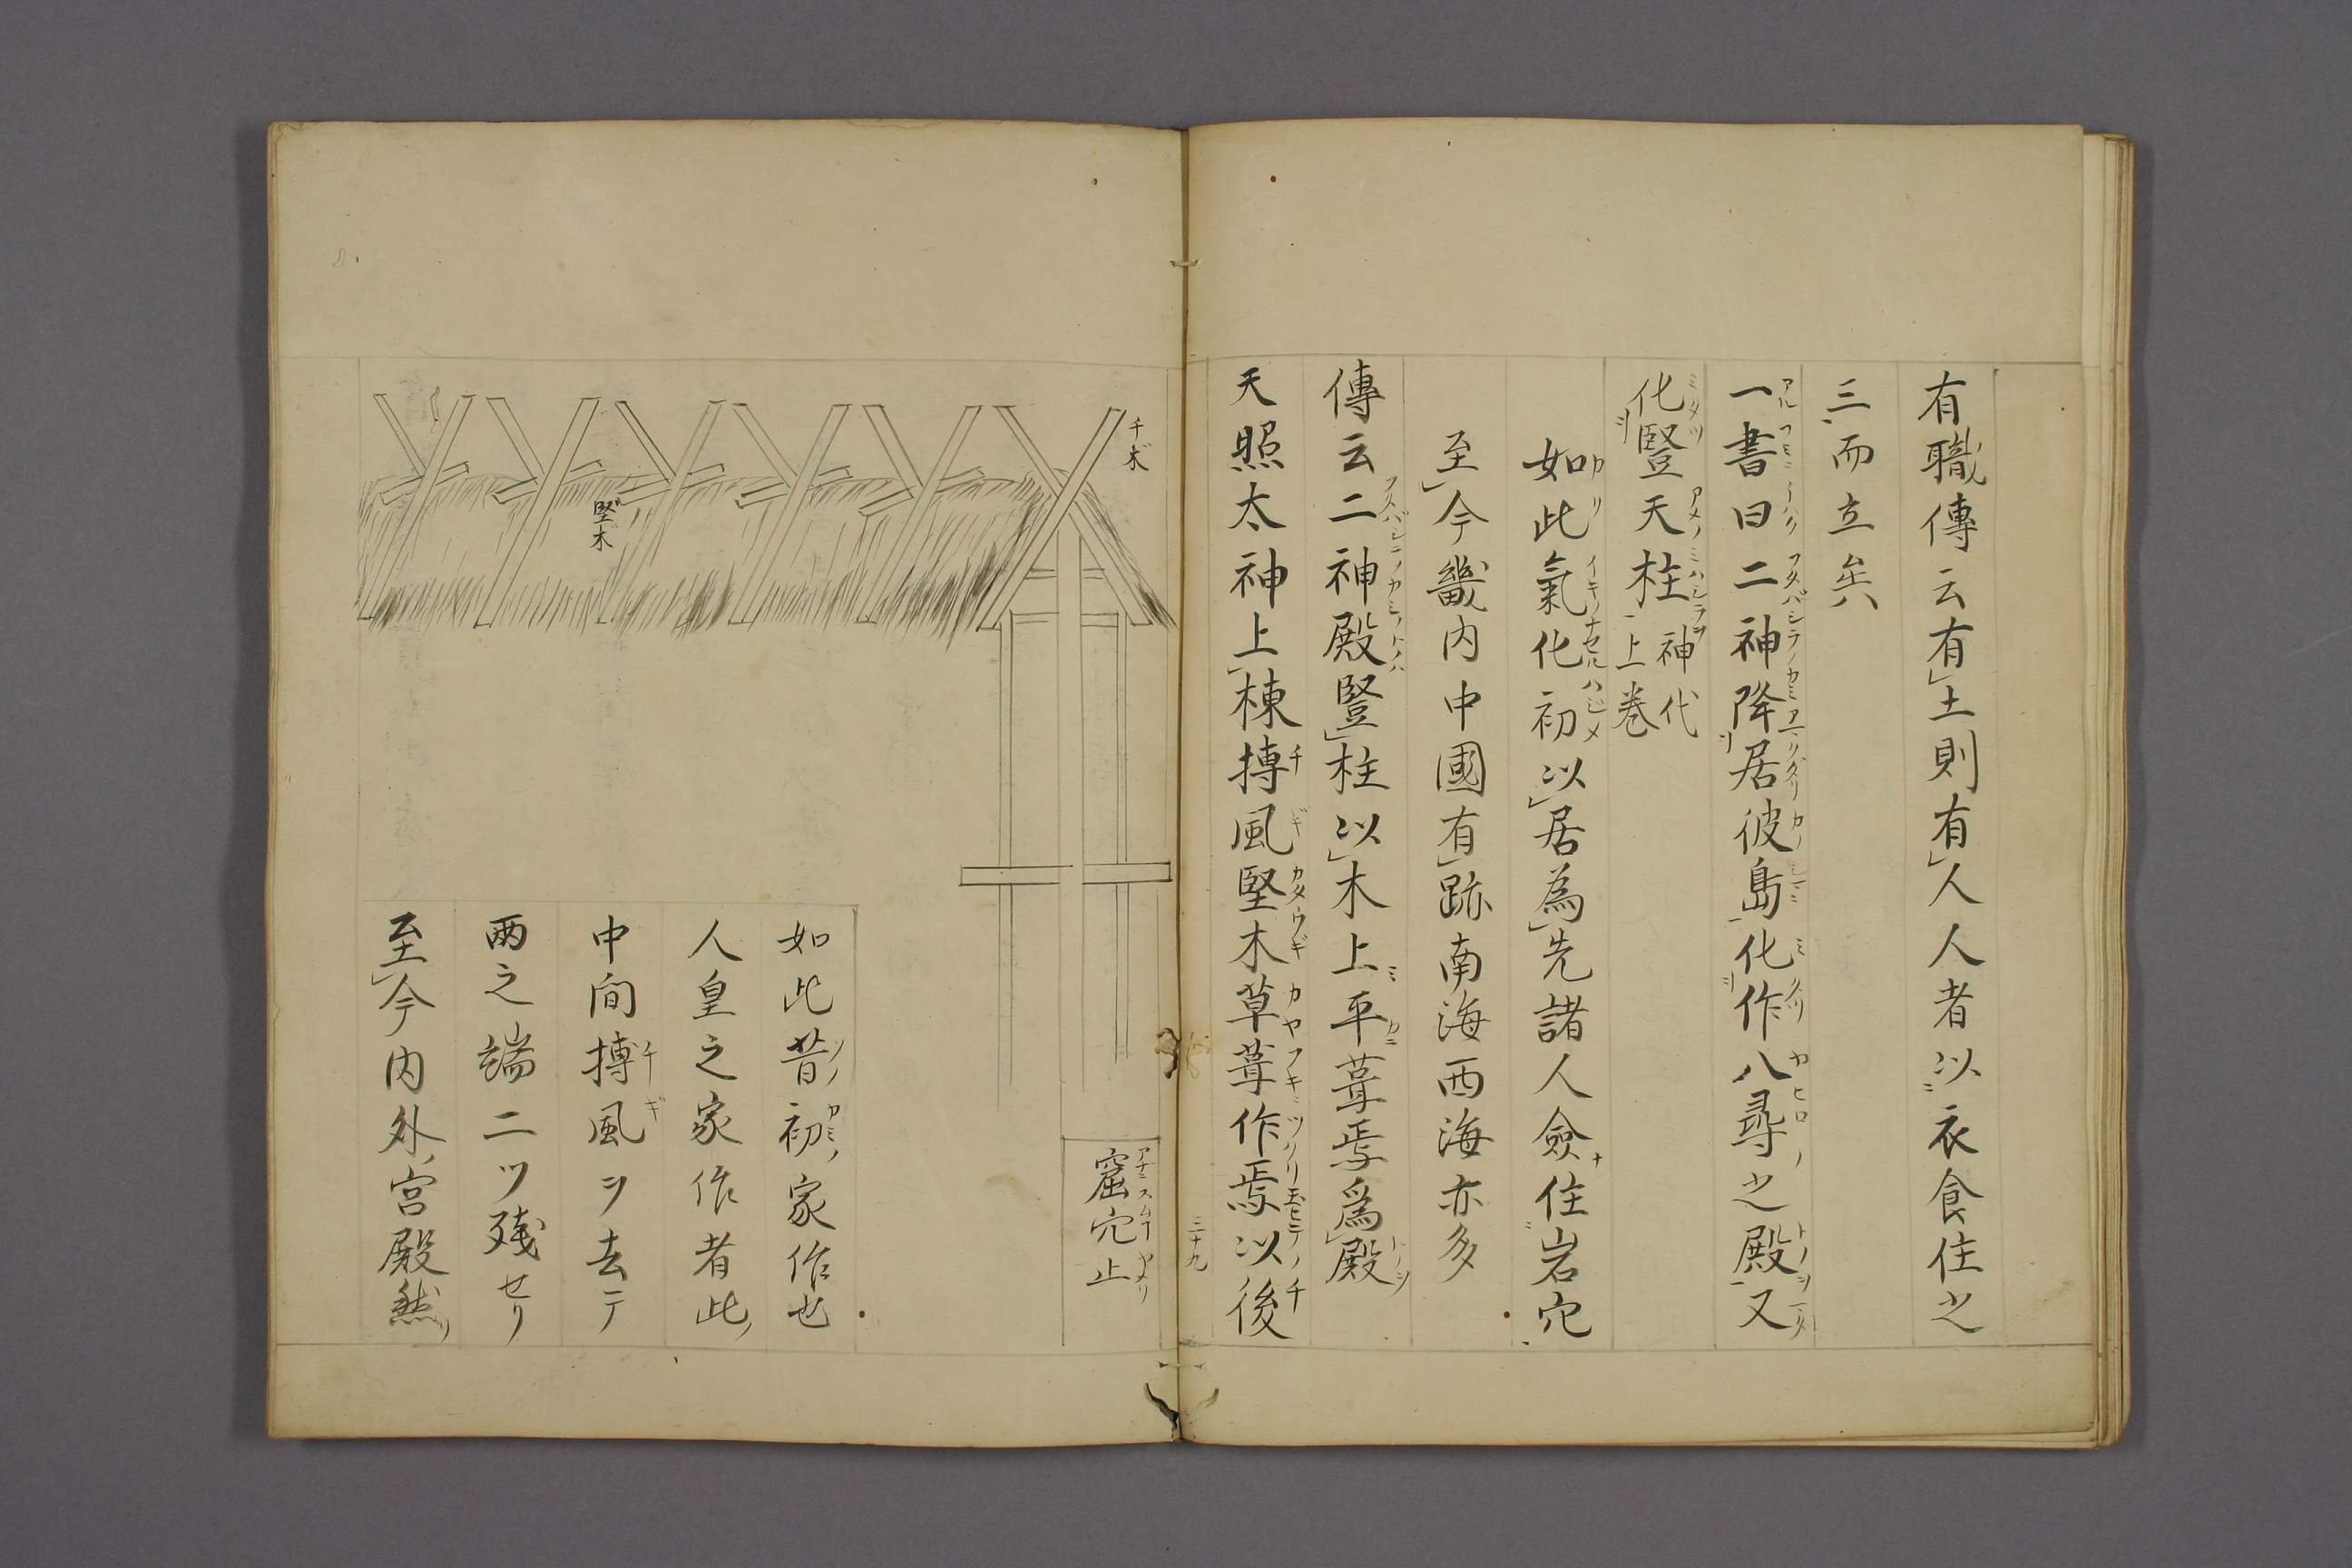 有職傳云有土則有人人者以衣食住之
三而立矣
一書曰二神降居彼島化作八尋之殿又
化竪天柱 神代上巻
如此氣化初以居為先諸人僉住岩穴
至今畿内中國有跡南海西海亦多
傳云二神殿竪柱以木上平葺焉爲殿
天照太神上棟搏風堅木草葺作焉以後
三十九
窟穴止
千木
堅木
如此昔ノ初ノ家作也
人皇之家作者此ノ
中間搏風ヲ去テ
両之端二ツ残セリ
至今内外ノ宮殿然リ